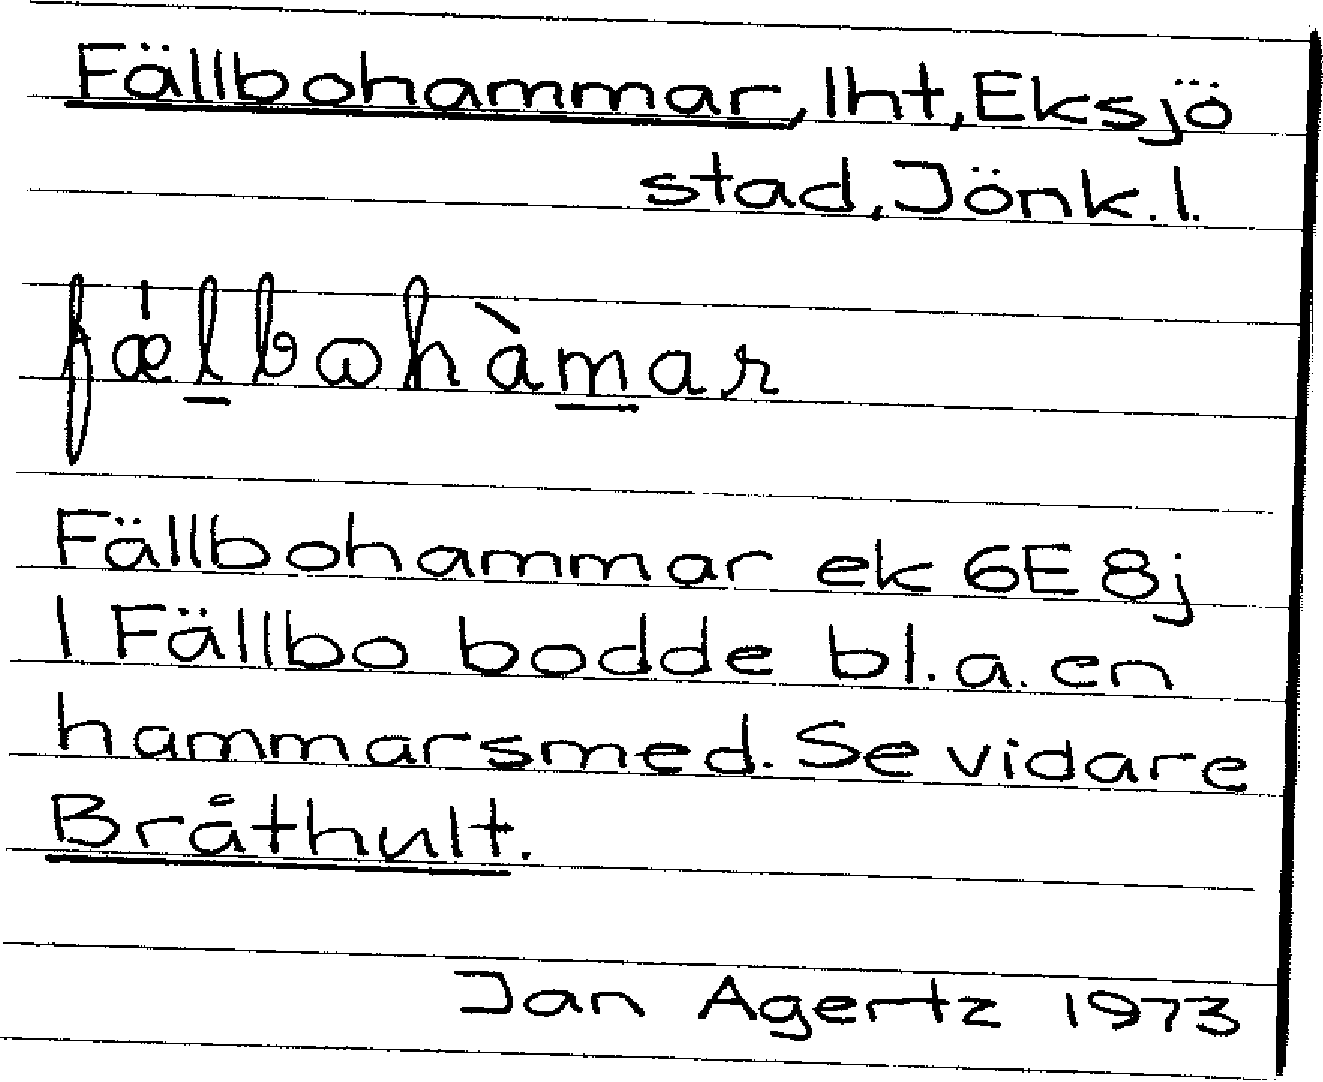 Fällbohammar, lht, Eksjö
stad, Jönk. l.
fǽl̲bωhàm̲ar
Fällbohammar ek 6E 8j
I Fällbo bodde bl.a. en
hammarsmed. Se vidare
Bråthult.
Jan Agertz 1973